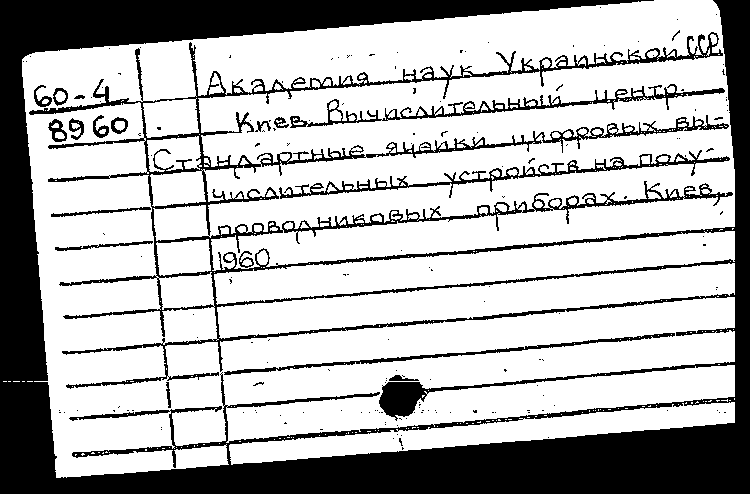 60-4
8960
Академия наук Украинской ССР.
Киев. Вычислительный центр.
Стандартные ячейки цифровых вы-
числительных устройств на полу-
проводниковых приборах. Киев,
1960.